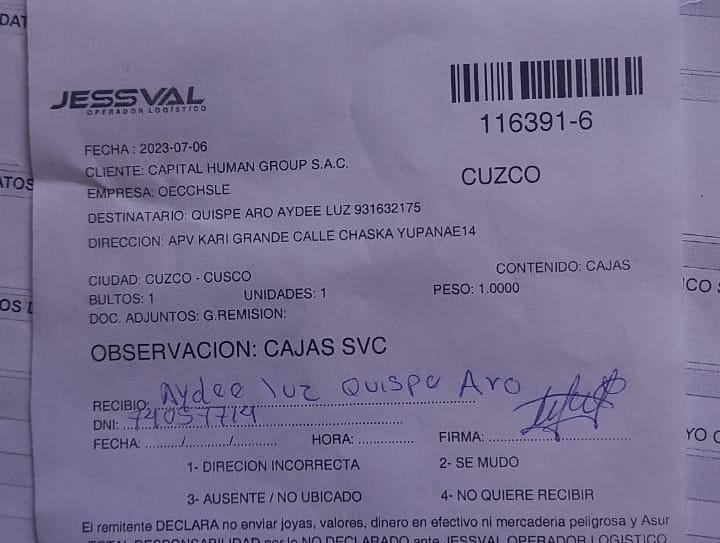 DAT
JESSVAL
OPERADOR LOGÍSTICO
116391-6
FECHA : 2023-07-06
CLIENTE: CAPITAL HUMAN GROUP S.A.C.
CUZCO
EMPRESA: OECCHSLE
DESTINATARIO: QUISPE ARO AYDEE LUZ 931632175
DIRECCION: APV KARI GRANDE CALLE CHASKA YUPANAE14
CIUDAD: CUZCO - CUSCO
CONTENIDO: CAJAS
BULTOS: 1 UNIDADES: 1 PESO: 1.0000
DOC. ADJUNTOS: G.REMISION:
OBSERVACION: CAJAS SVC
RECIBIO: Aydee luz Quispe Aro
DNI:
FECHA: ........./.........../........... HORA: ............. FIRMA: .................................
1- DIRECION INCORRECTA 2- SE MUDO
3- AUSENTE / NO UBICADO 4- NO QUIERE RECIBIR
El remitente DECLARA no enviar joyas, valores, dinero en efectivo ni mercaderia peligrosa y Asur
ATOS
OS
CO
YO